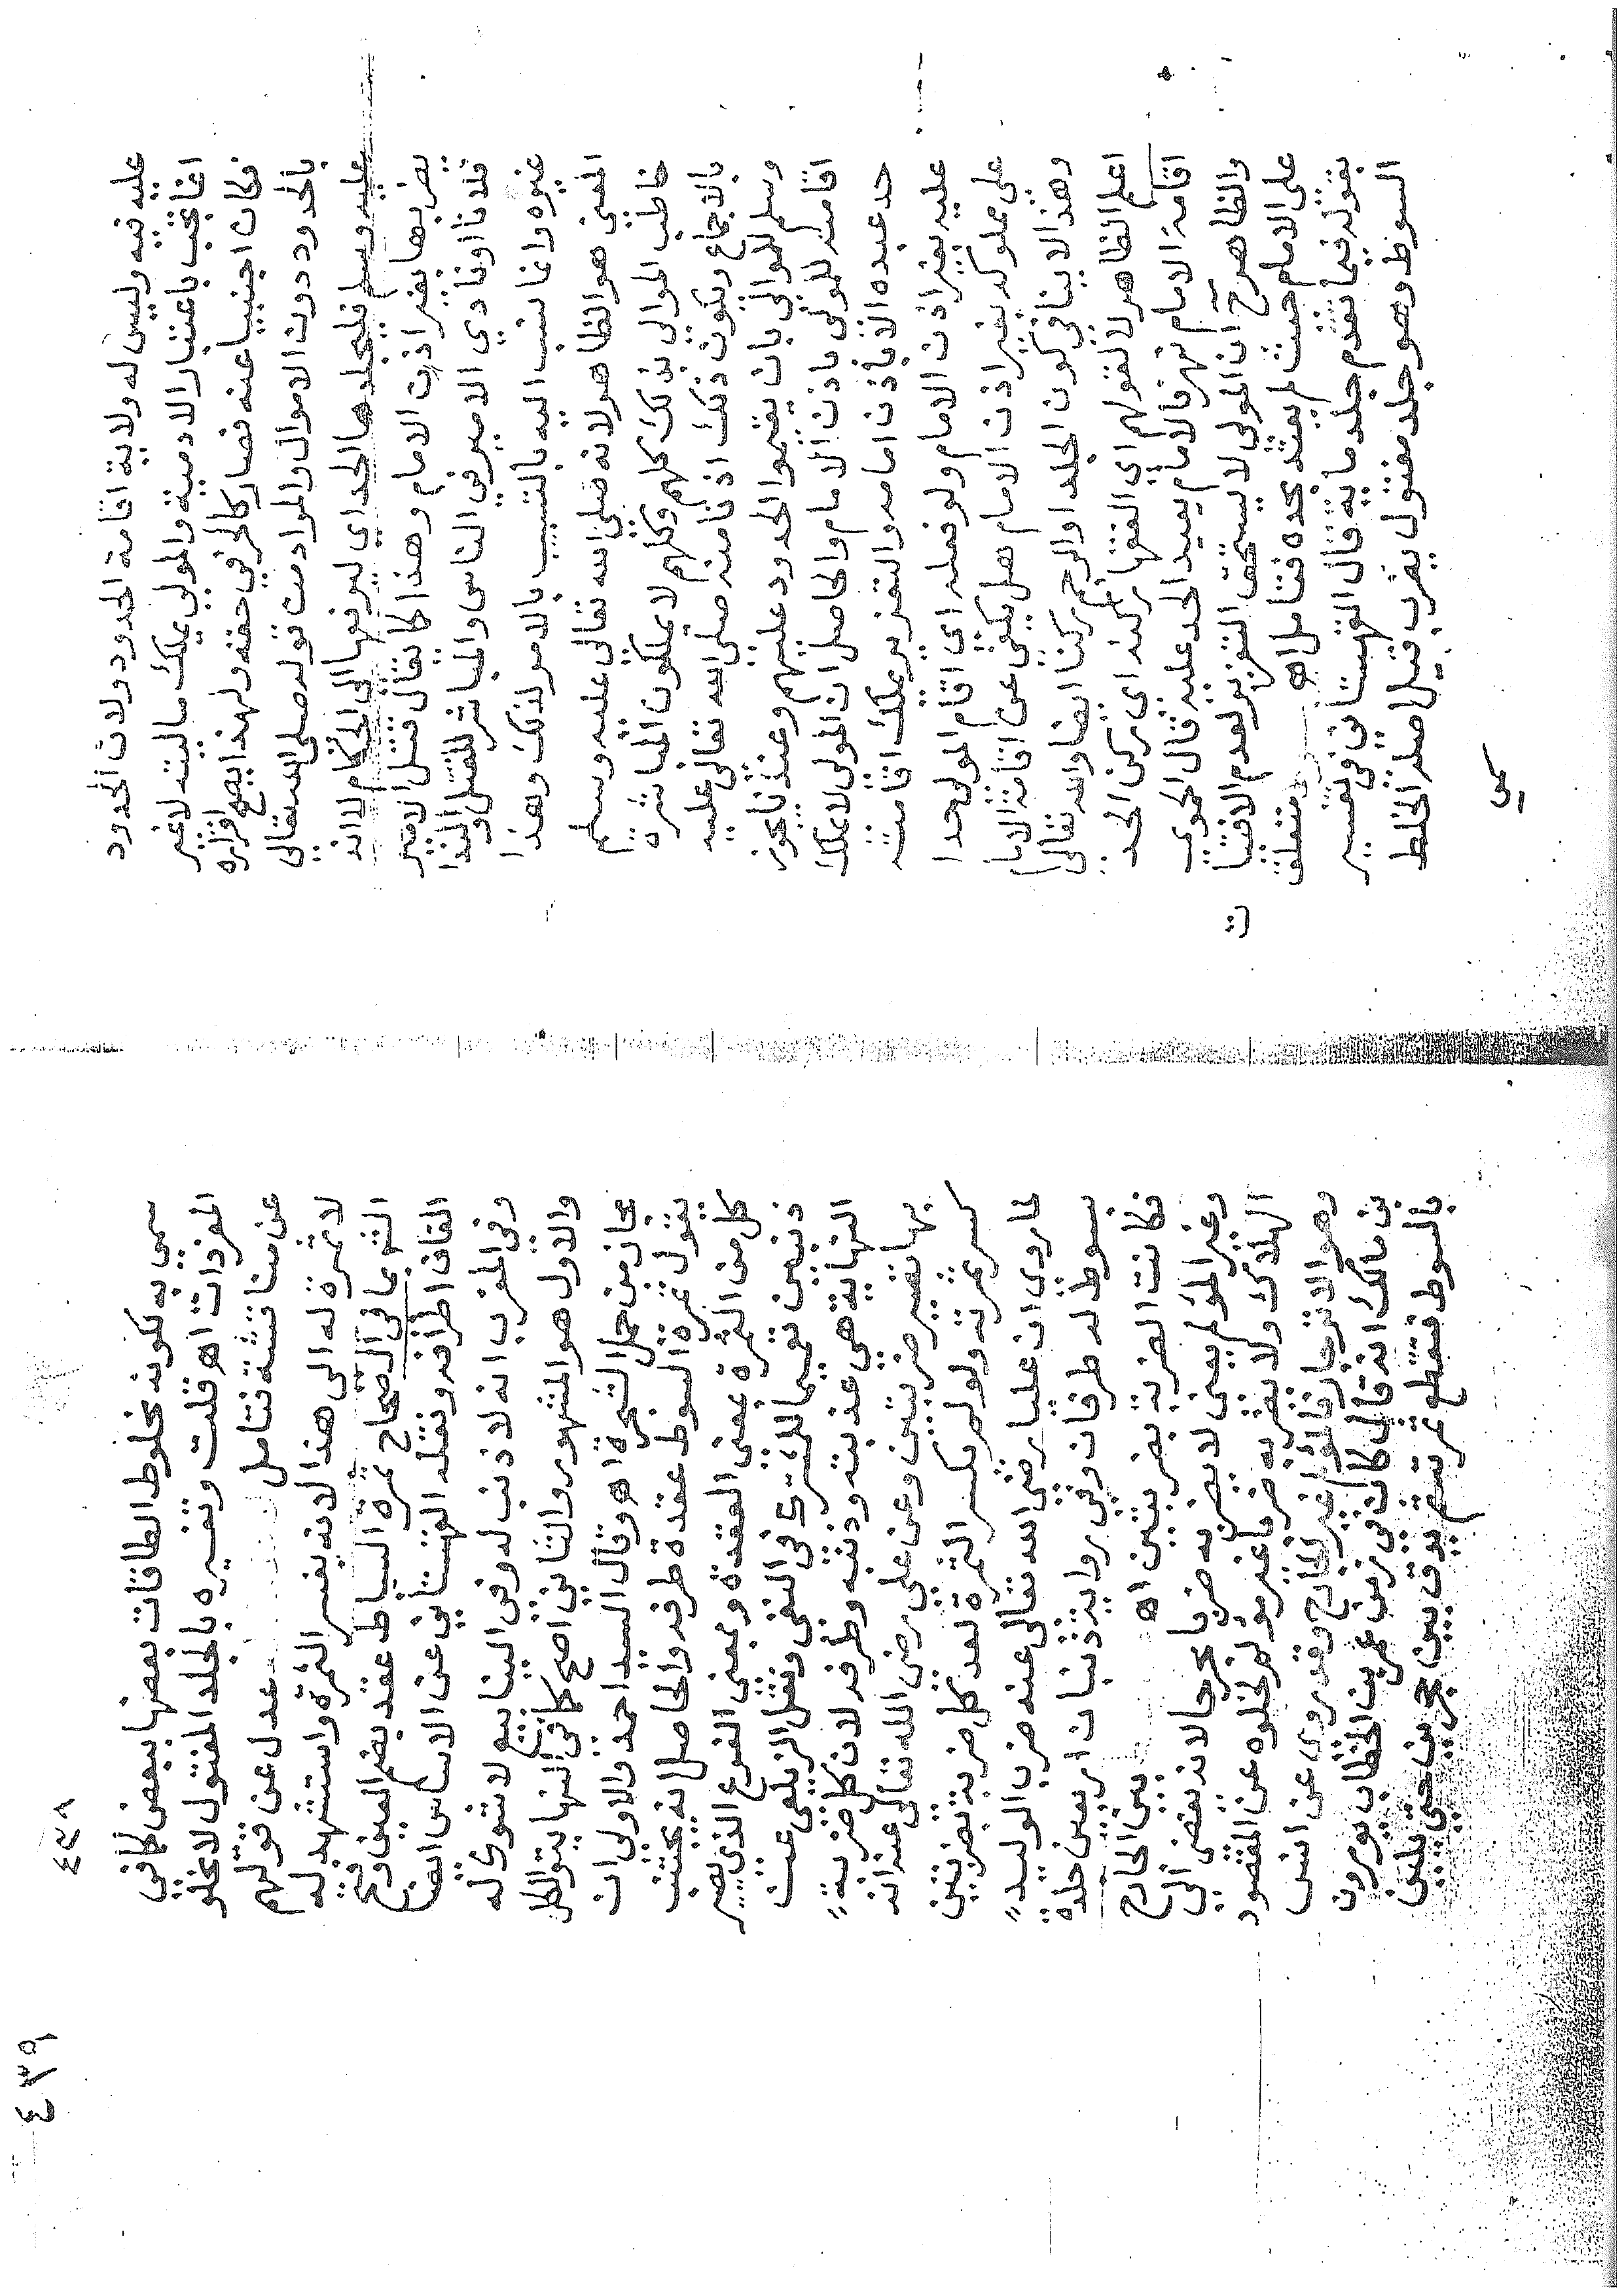 عليه فيه وليس له ولاية اقامة الحدود ولان الحدود
انما تجب باعتبار الادمية والمولى يملك ماليته لا غير
فكان اجنبيا عنه فصار كالحر في حقه ولهذا يصح اقراره
بالحدود دون الاموال والمراد من قوله صلى الله تعالى
عليه وسلم فليجلدها الحد اي ليرفعها الى الحكام لا انه
يضربها بغير اذن الامام وهذا كما يقال قتل الامير
فلانا او نادي الامير في الناس والمباشر للقتل والندا
غيره وانما نسب اليه بالتسبب بالامر لذلك وهذا
المعنى هو الظاهر لانه صلى الله تعالى عليه وسلم
خاطب الموالي بذلك كلهم وكلهم لا يملكون المباشرة
بالاجماع ويكون ذلك اذنا منه صلى الله تعالى عليه
وسلم للموالي بان يقيموا الحدود عليهم وعندنا يجوز
اقامته للمولى باذن الامام والحاصل ان المولى لا يملك
حد عبده الا باذن امامه والتعزير يملك اقامته
عليه بغير اذن الامام ولو فعله اي اقام المولى حدا
على مملوكه بغير اذن الامام هل يكفي عن اقامة الامام
وهذا لا ينافي كون الجلد او الرجم ركنا ايضا والله تعالى
اعلم الظاهر لا لقولهم اي الفقهاء ركنه اي ركن الحد
اقامة الامام نهر فالامام يعيد الحد عليه قال الحموي
والظاهر ح ان المولى لا يستحق التعزير لعدم الافتيات
على الامام حيث لم يعتد بحده فتامل اه متعلق
بقوله فيما تقدم جلد ماية قال القهستاني في تفسير
السوط وهو جلد مفتول يضرب قيل اصله الخلط
سمي
٤٣٨
٤٣٩
سمي به لكونه مخلوط الطاقات بعضها ببعض كما في
المفردات اه قلت وتفسيره بالجلد المفتول لا يخلو
عن مناقشة فتامل عدل عن قولهم
لا ثمرة له الى هذا لانه يفسر الثمرة واستشهد له
الشرح بما في الصحاح ثمرة السياط عقد بضم العين وفتح
القاف اطرافه ونقله القهستاني عن الاساس ايضا
وفي المغرب انه لا ذنب له وفي الينابيع لا شوك له
والاول هو المشهور والثاني اصح كما في النهاية والكل
مجاز من حمل الشجرة اه وقال السيد احمد والاولى ان
يقول ثمرة السوط عقدة طرفه والحاصل انه يجتنب
كل من الثمرة بمعنى العقدة وبمعنى الفرع الذي يصير
ذنبين تعميما للمشترك في النفي ونقل الزيلعي عن
النهاية هي عذبته وذنبه وطرفه لان كل ضربة
بها تصير ضربتين وعن علي رضي الله تعالى عنه انه
كسر ثمرته ولو لم يكسر الثمرة تعد كل ضربة بضربتين
لما روى ان عليا رضي الله تعالى عنه ضرب الوليد
بسوط له طرفان وفي رواية ذنبان اربعين جلدة
فكانت الضربة بضربتين اه بين الجارح
وغير المؤلم يعني لا يضربه ضربا يجرحا لانه يفضي الى
الهلاك ولا يضربه ضربا غير مؤلم لخلوه عن المقصود
وهو الانزجار قالوا غير الجارح وقد روى عن انس
بن مالك انه قال كان في زمن عمر بن الخطاب يومرون
بالسوط فتقطع ثمرته ثم يدق بين حجرين حتى يلين